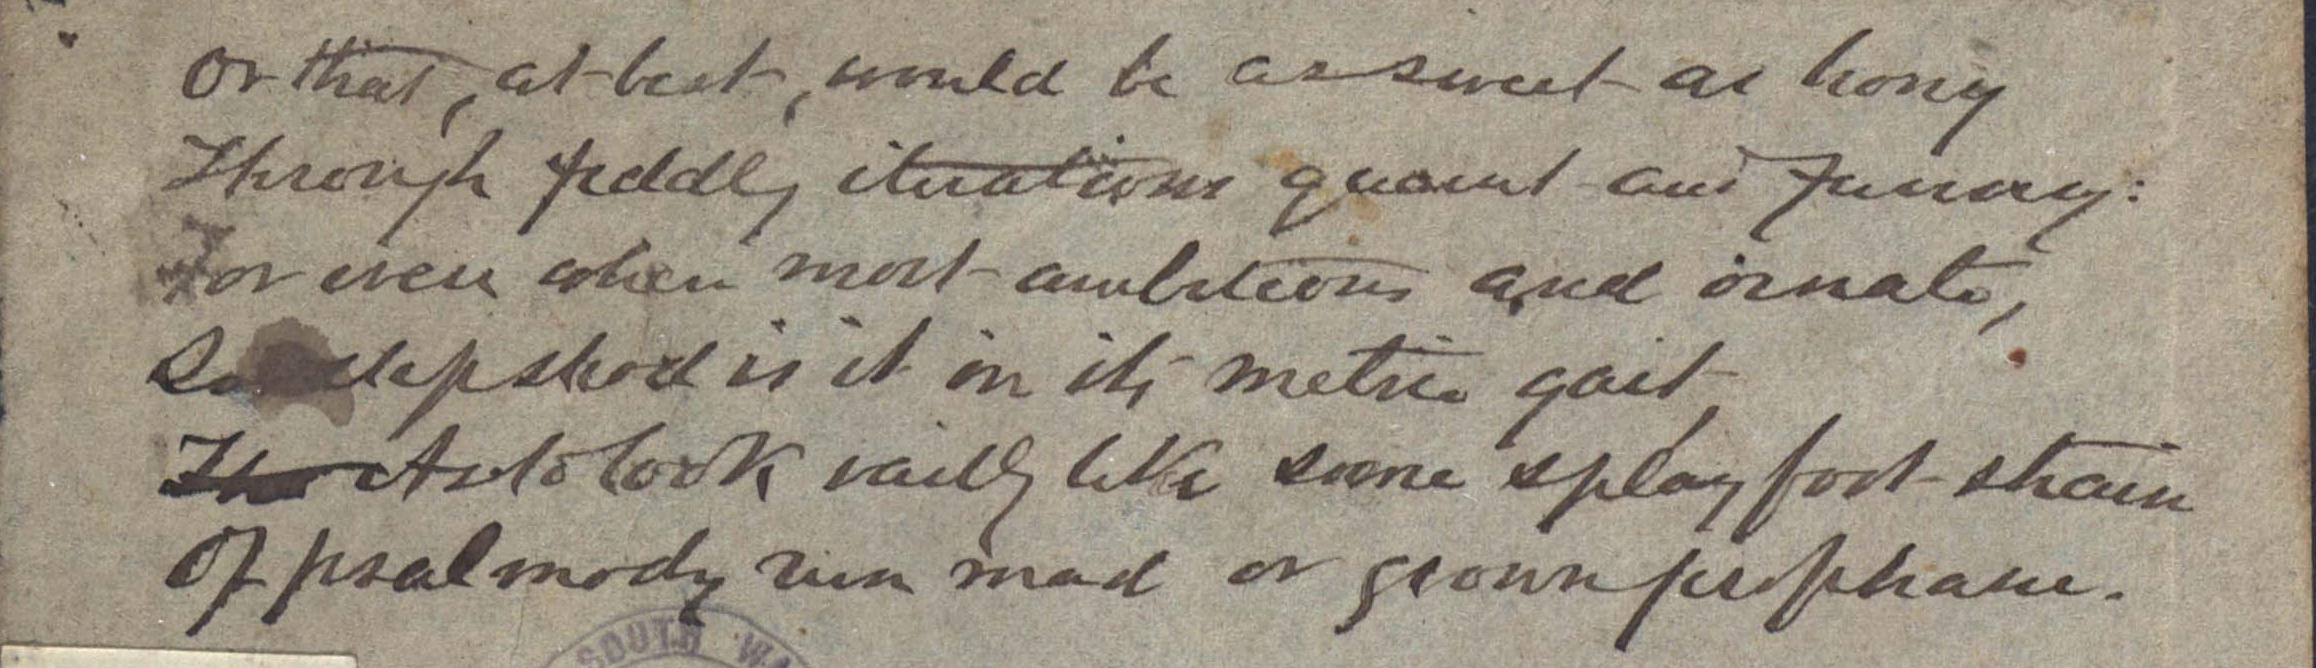 Or that, at best, would be as sweet as hony
Through fiddly iterations quaint and funny:
For even when most ambitious and ornate,
So slipshod is it in its metric gait,
As to look vailly like some splayfoot strain
Of psalmody run mad or grown prophane.
SOUTH WA